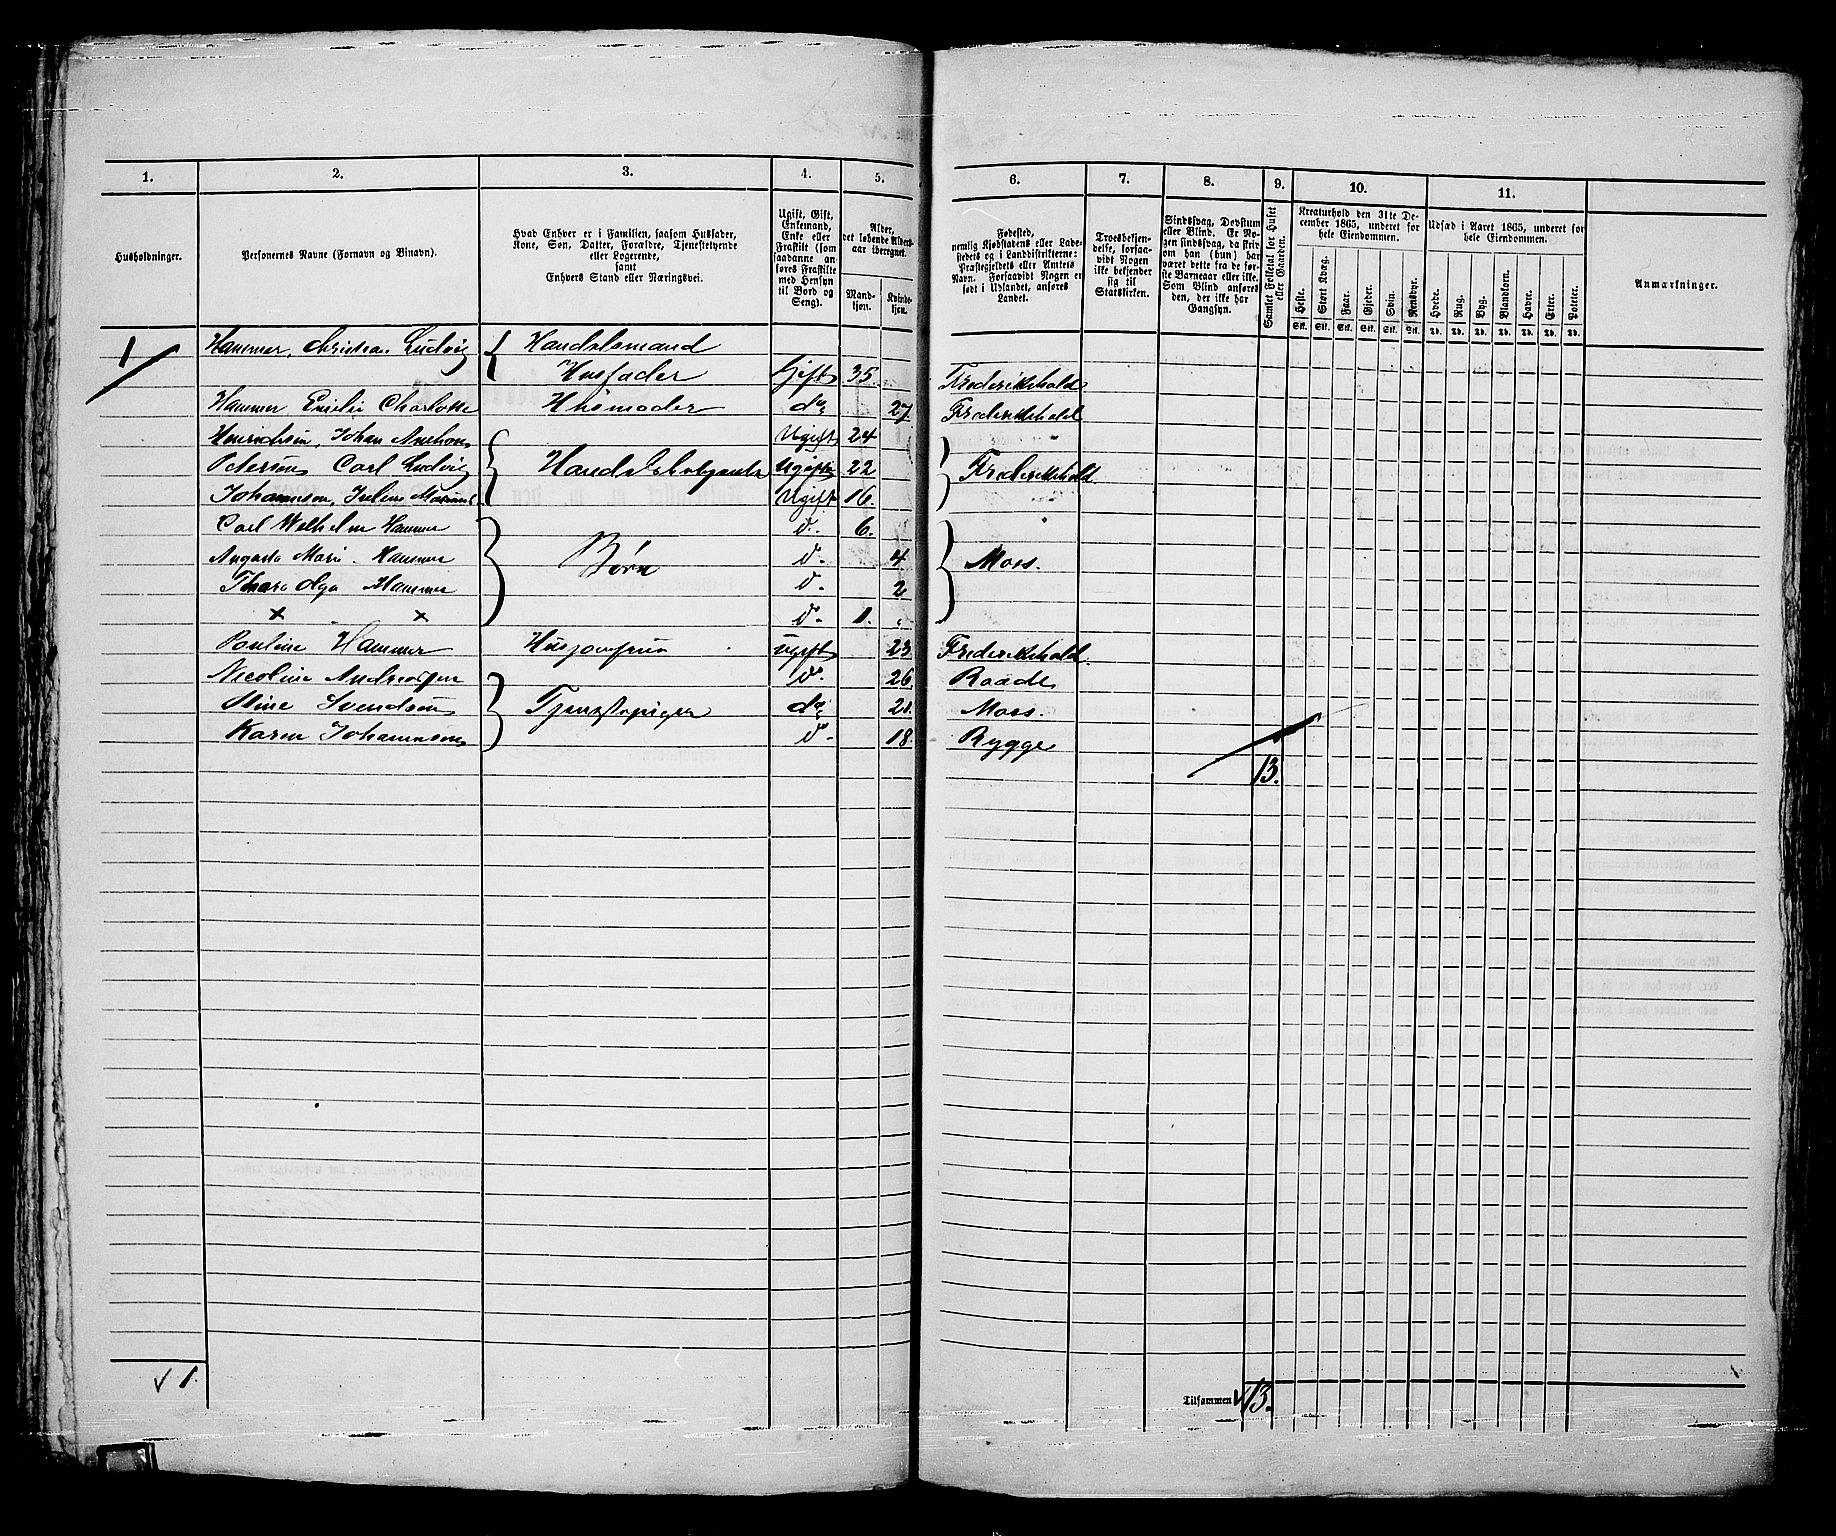 1. 2. 3. 4. 5. 6. 7. 8. 9. 10. 11.
Husholdninger.
Personernes Navne (Fornavn og Binavn).
Hvad Enhver er i Familien, saasom Husfader,
Kone, Søn, Datter, Forældre, Tjenestetyende
eller Logerende,
samt
Enhvers Stand eller Næringsvei.
Ugift, Gift,
Enkemand,
Enke eller
Fraskilt (som
saadanne an-
føres Fraskilte
med Hensyn
til Bord og
Seng).
Alder,
det løbende Alders-
aar iberegnet.
Mand-
kjøn.
Kvinde-
kjøn.
Fødested,
nemlig Kjøbstadens eller Lade-
stedets og i Landdistrikterne:
Præstegjeldets eller Amtets
Navn. Forsaavidt Nogen er
født i Udlandet, anføres
Landet.
Troesbekjen-
delse, forsaa-
vidt Nogen
ikke bekjender
sig til
Statskirken.
Sindssvag, Døvstum
eller Blind. Er No-
gen sindssvag, da skriv
om han (hun) har
været dette fra de før-
ste Barneaar eller ikke.
Som Blind anføres
den, der ikke har
Gangsyn.
Samlet Folketal for Huset
eller Gaarden.
Kreaturhold den 31te De-
cember 1865, underet for
hele Eiendommen.
Heste. Stort Kvæg. Faar. Gjeder. Svin. Rensdyr.
Stk. Stk. Stk. Stk. Stk. Stk.
Udsæd i Aaret 1865, underet for
hele Eiendommen.
Hvede. Rug. Byg. Blandkorn. Havre. Erter. Poteter.
Td. Td. Td. Td. Td. Td. Td.
Anmærkninger.
1 Hammer, Christian Ludvig Handelsmand
Husfader Gift 35. Frederikshald
Hammer Emilie Charlotte Husmoder do 27. Frederikshald
Henrichsen, Johan Anthon Ugift 24
Petersen Carl Ludvig Handelsbetjente Ugift 22 Frederikshald
Johannesen, Julius Ugift 16.
Carl Wilhelm Hammer d. 6.
Augusta Marie Hammer Børn d. 4. Moss.
Thora Olga Hammer d. 2
x x d. 1.
Pouline Hammer Husjomfrue ugift 23 Frederikshald.
Nicoline Andreassen d. 26. Raade
Stine Svendsen Tjenestepiger do 21. Moss.
Karen Johannesen d. 18. Rygge
13.
√ 1.
Tilsammen √ 13.